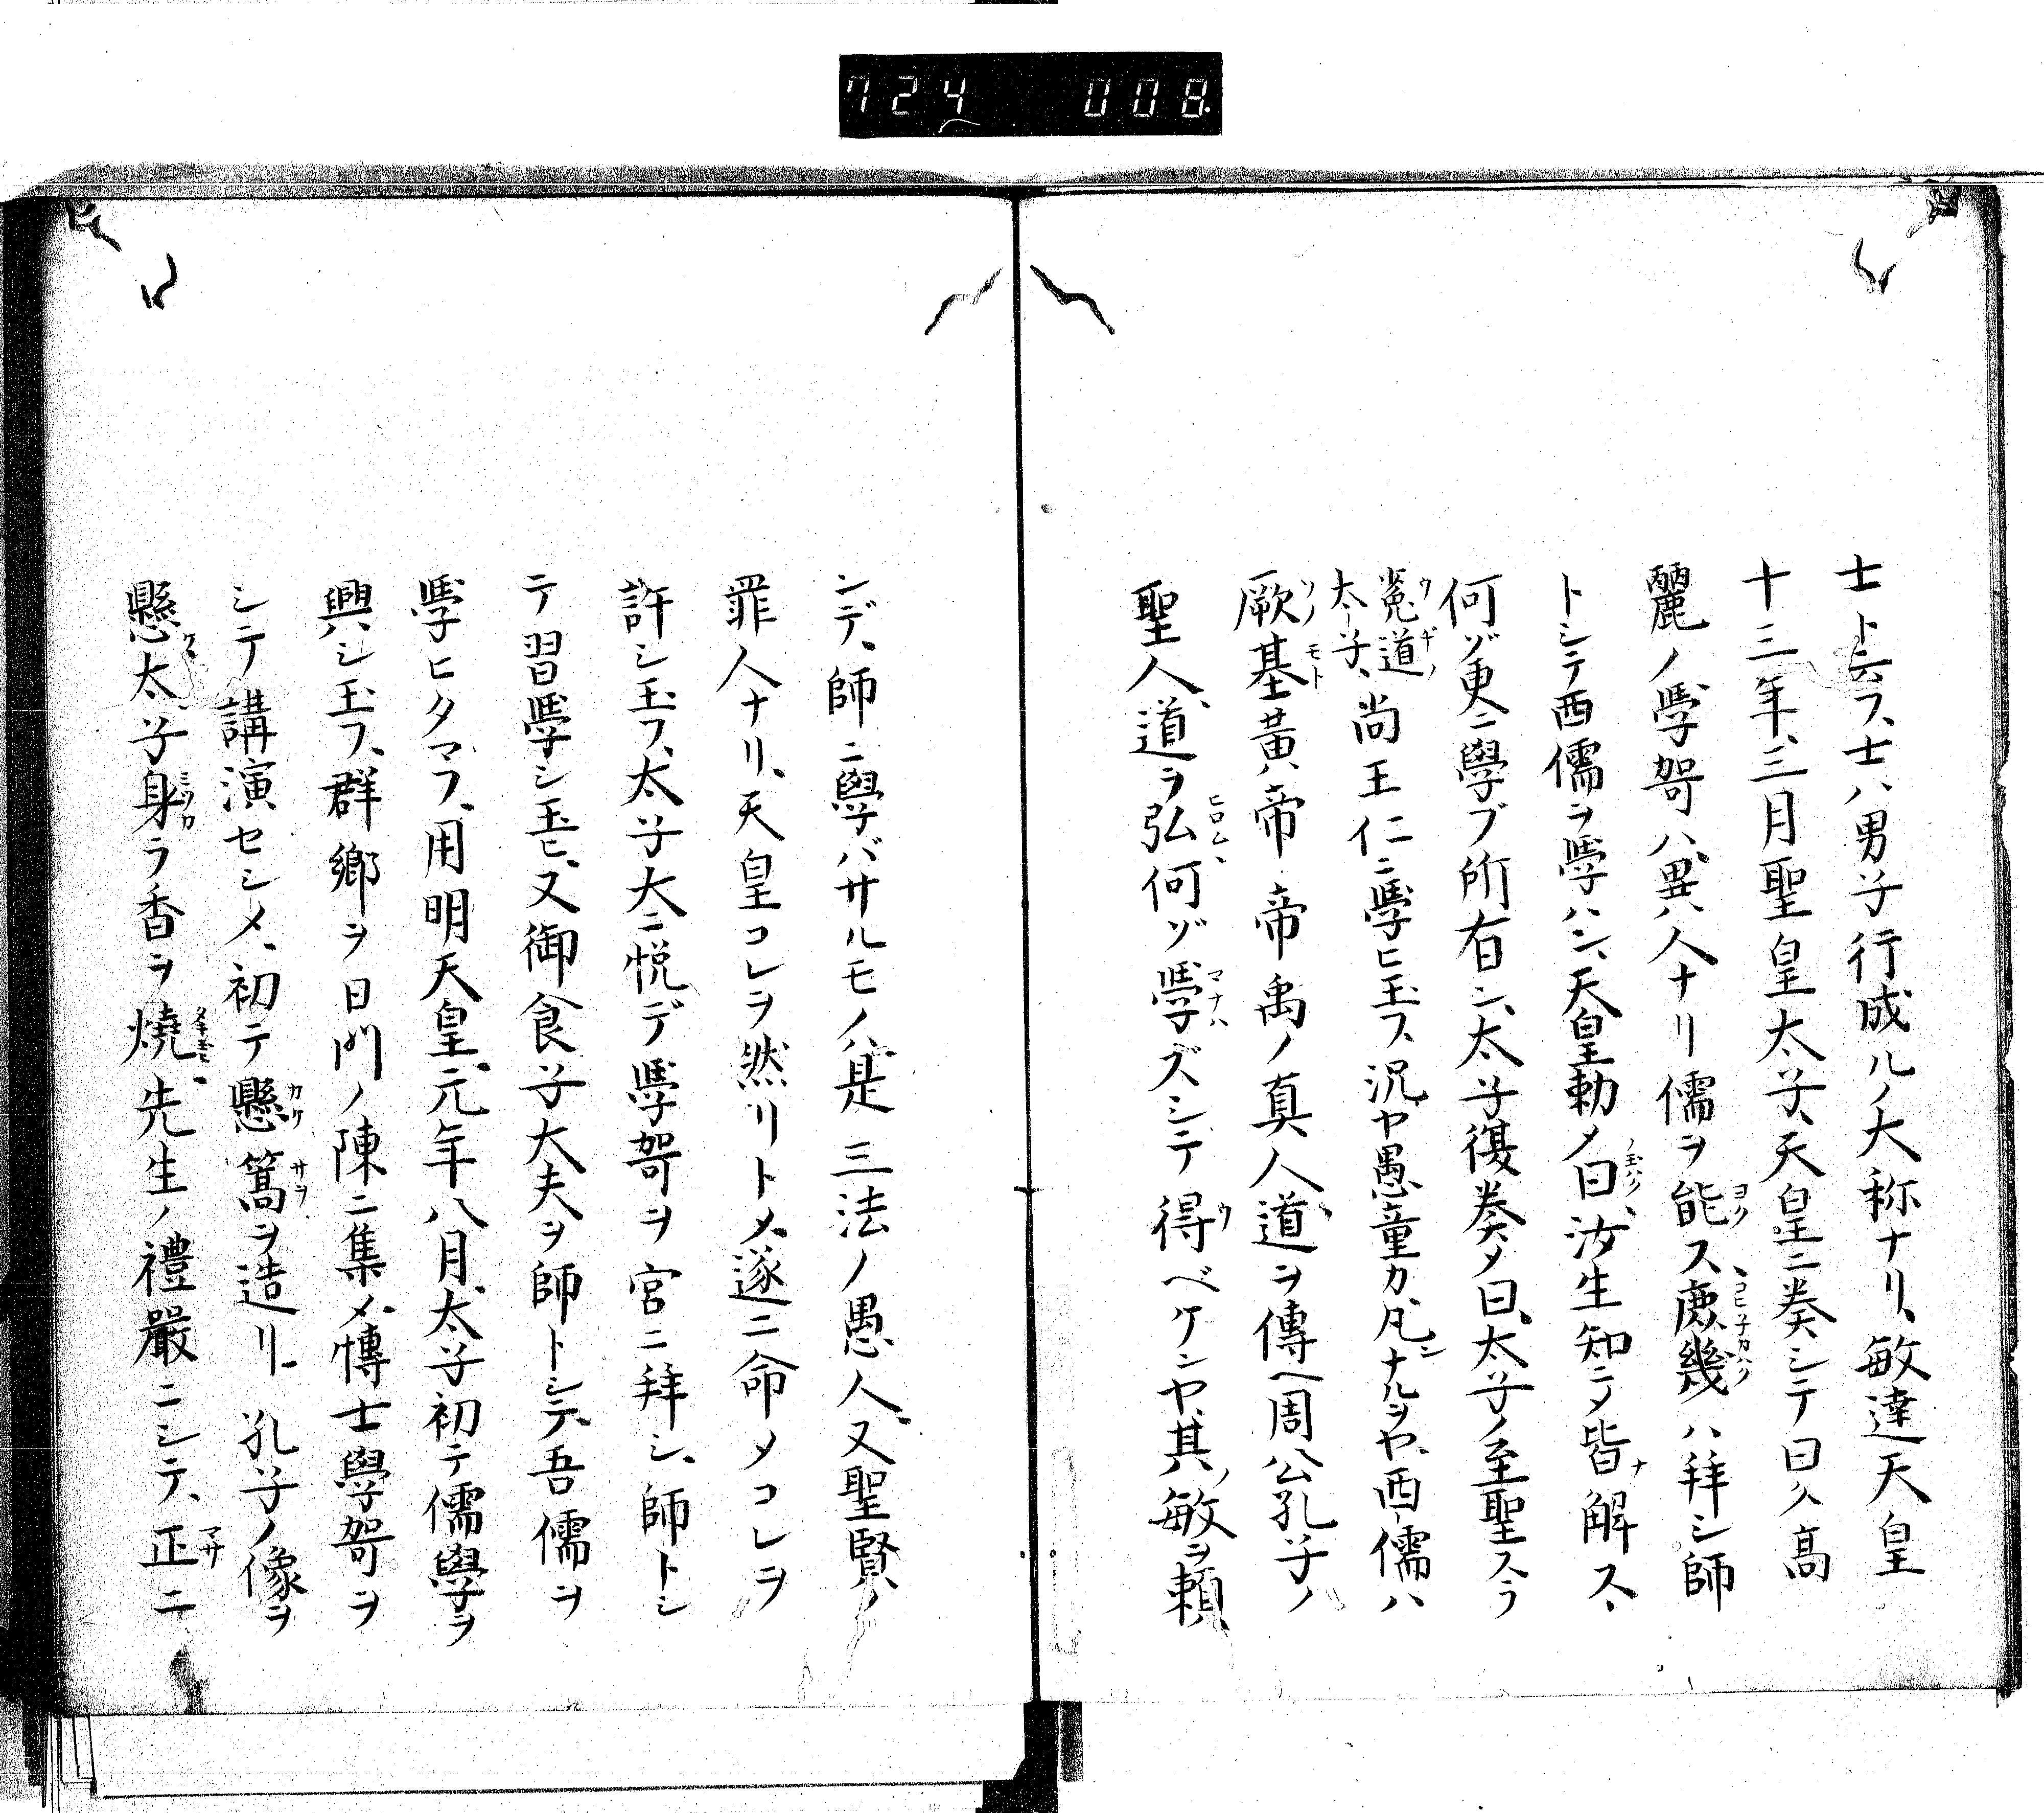 724 008
士ト云フ、士ハ男子行成ルノ大称ナリ、敏達天皇
十三年、三月聖皇太子、天皇ニ奏シテ曰ク高
麗ノ學哿ハ、異ハ人ナリ儒ヲ能ス、庶幾ハ拜シ師
トシテ西儒ヲ學ハン、天皇勅メ曰、汝生知ニメ皆解ス、
何ゾ更ニ學ブ所有ン、太子復奏メ曰、太子ノ至聖スラ
菟道太子、尚王仁ニ學ヒ玉フ、況ヤ愚童カ、凡ナルヲヤ、西儒ハ
厥基黃帝帝禹ノ真人道ヲ傳ヘ周公孔子ノ
聖人道ヲ弘何ゾ學ズシテ得ベケンヤ、其ノ敏ヲ頼、
ンデ、師ニ學バサルモノハ、是三法ノ愚人、又聖賢ノ
罪人ナリ、天皇コレヲ然リトメ、遂ニ命メコレヲ
許シ玉フ、太子大ニ悦デ學哿ヲ宮ニ拜シ、師トシ
テ習學シ玉ヒ、又御食子大夫ヲ師トシテ、吾儒ヲ
學ヒタマフ、用明天皇、元年八月、太子初テ儒學ヲ
興シ玉フ、群郷ヲ日門ノ陳ニ集メ、博士學哿ヲ
シテ講演セシメ、初テ懸篙ヲ造リ孔子ノ像ヲ
懸太子身ラ香ヲ燒、先生ノ禮嚴ニシテ、正ニ